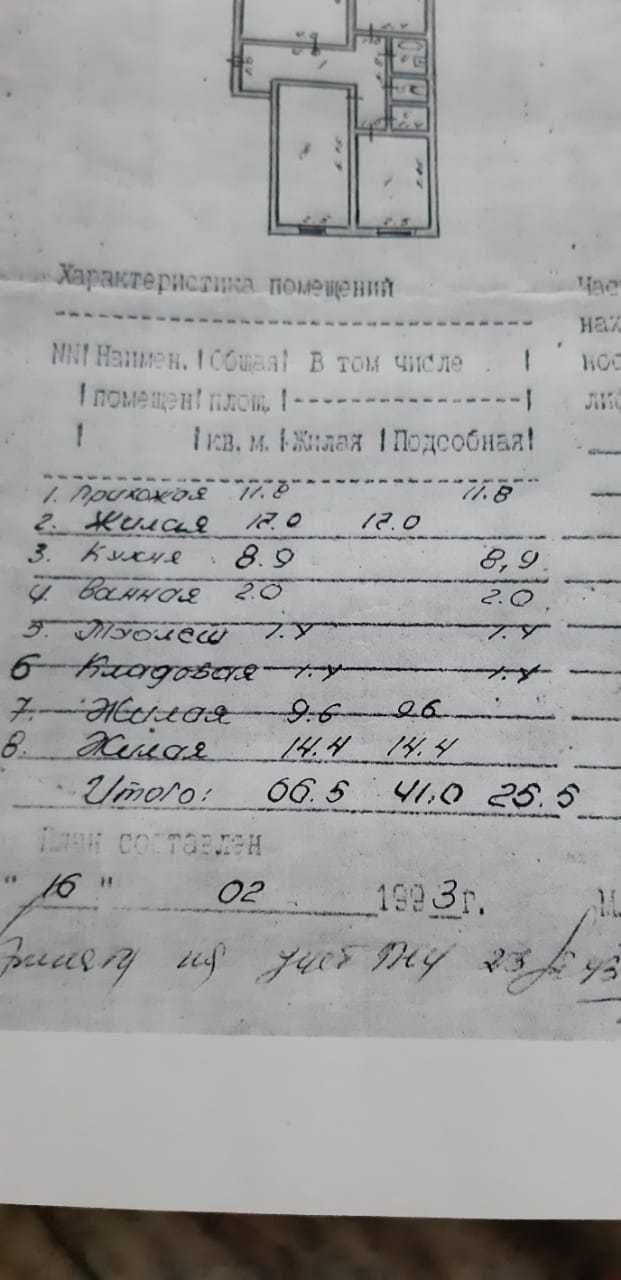 Характеристика помещений
NN! Наимен. !Общая! В том числе !
!помещен!площ. !------------------!
! !кв. м. !-Жилая !Подсобная!
1. Прихожая 11.8 11.8
2. Жилая 17.0 17.0
3. Кухня 8.9 8,9
4. Ванная 2.0 2.0
5. Туалет 1.4 1.4
6 Кладовая 1.4 1.4
7. Жилая 9.6 9.6
8. Жилая 14.4 14.4
Итого: 66.5 41.0 25.5
План составлен
"16" 02 1993г.
на учет
Час
нах
кос